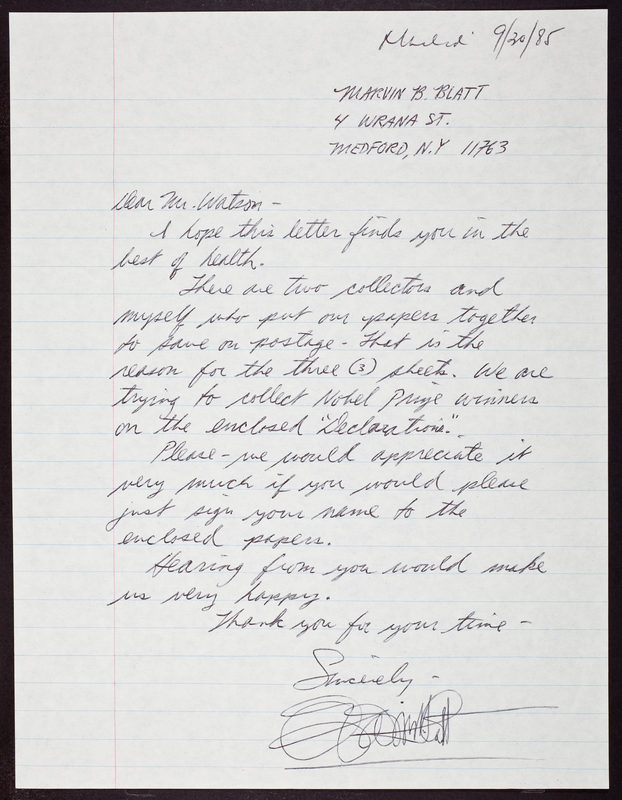 Mailed 9/30/85
MARVIN B. BLATT
4 WRANA ST.
MEDFORD, N.Y 11763
Dear Mr. Watson -
I hope this letter finds you in the
best of health.
There are two collectors and
myself who put our papers together
to save on postage - that is the
reason for the three (3) sheets. We are
trying to collect Nobel Prize winners
on the enclosed "Declarations".
Please - we would appreciate it
very much if you would please
just sign your name to the
enclosed papers.
Hearing from you would make
us very happy.
Thank you for your time -
Sincerely -